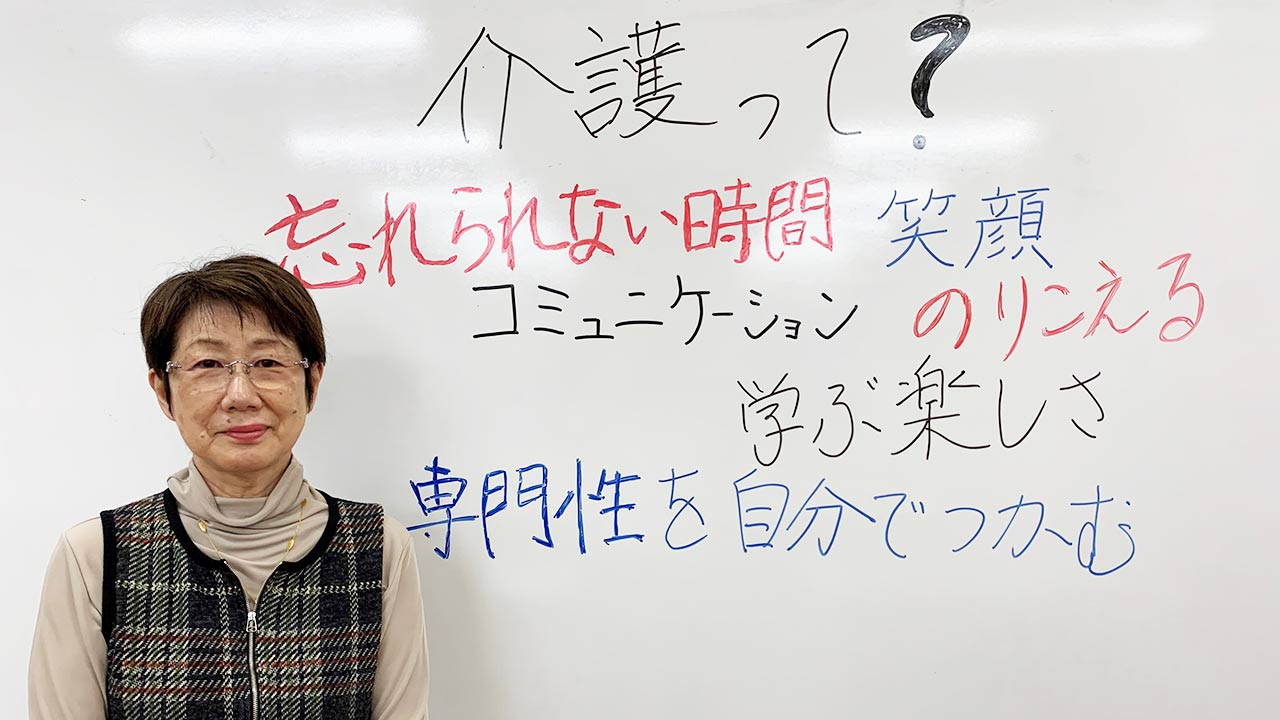 介護って?
忘れられない時間 笑顔
コミュニケーション のりこえる
学ぶ楽しさ
専門性を自分でつかむ